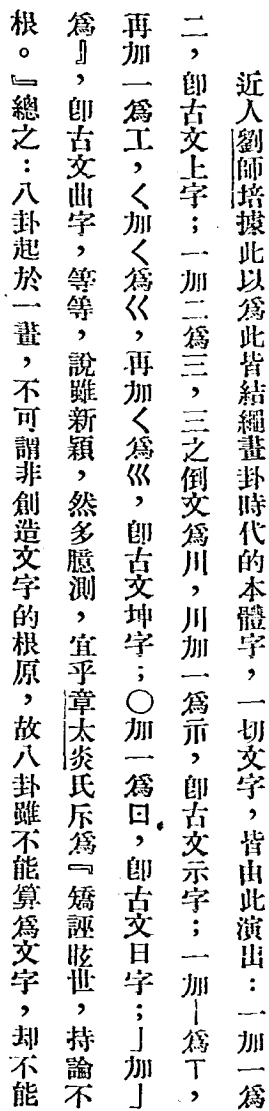 近人劉師培據此以爲此皆結繩畫卦時代的本體字，一切文字，皆由此演出：一加一爲
二，卽古文上字；一加二爲三，三之倒文爲川，川加一爲𠕁，卽古文示字；一加丨爲丅，
再加一爲工，𡿨加𡿨爲巜，再加𡿨爲巛，卽古文坤字；〇加一爲囗，卽古文日字；亅加亅
爲』，卽古文曲字，等等，說雖新穎，然多臆測，宜乎章太炎氏斥爲『矯誣眩世，持論不
根。』總之：八卦起於一畫，不可謂非創造文字的根原，故八卦雖不能算爲文字，却不能